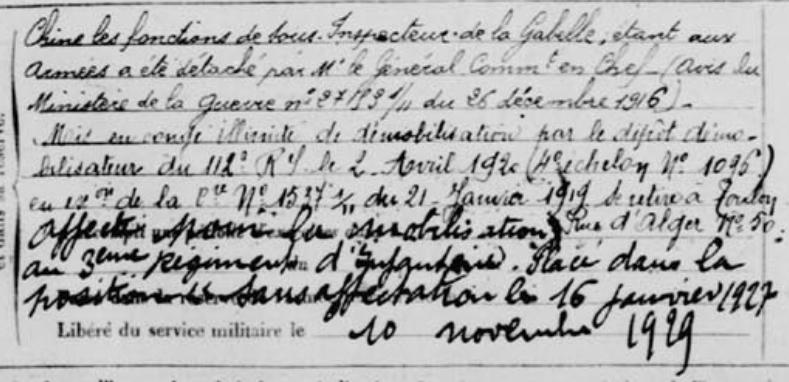 Chine les fonctions de Sous-Inspecteur de la Gabelle, étant aux
Armées a été détaché par Mr le Général Commt en Chef - (Avis du
Ministère de la Guerre n° 27193 1/11 du 26 décembre 1916) -
Mis en congé illimité de démobilisation par le dépôt démo-
bilisateur du 112e RI le 2 Avril 1920 (4e échelon N° 1096)
en on de la Cre N° 1527 1/11 du 21 Janvier 1919 se retire à Toulon
Rue d'Alger N° 50.
Affecté pour la mobilisation
au 3ème Régiment d'Infanterie. Placé dans la
position de sans affectation le 16 janvier 1927
Libéré du service militaire le 10 novembre 1929